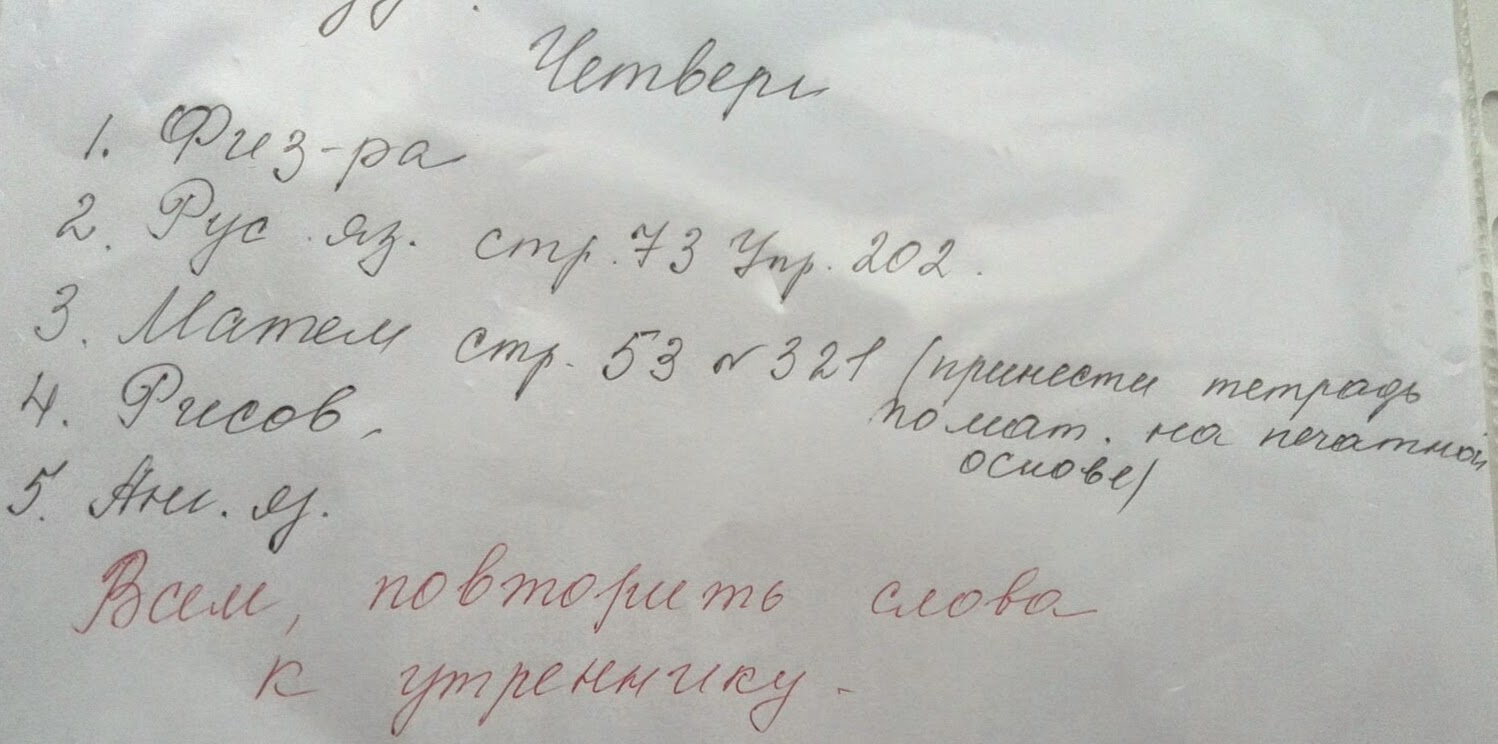 Четверг
1. Физ-ра
2. Рус. яз. стр. 73 Упр. 202.
3. Матем стр. 53 № 321 (принести тетрадь
по мат. на печатной
основе)
4. Рисов.
5. Анг. яз.
Всем, повторить слова
к утреннику.